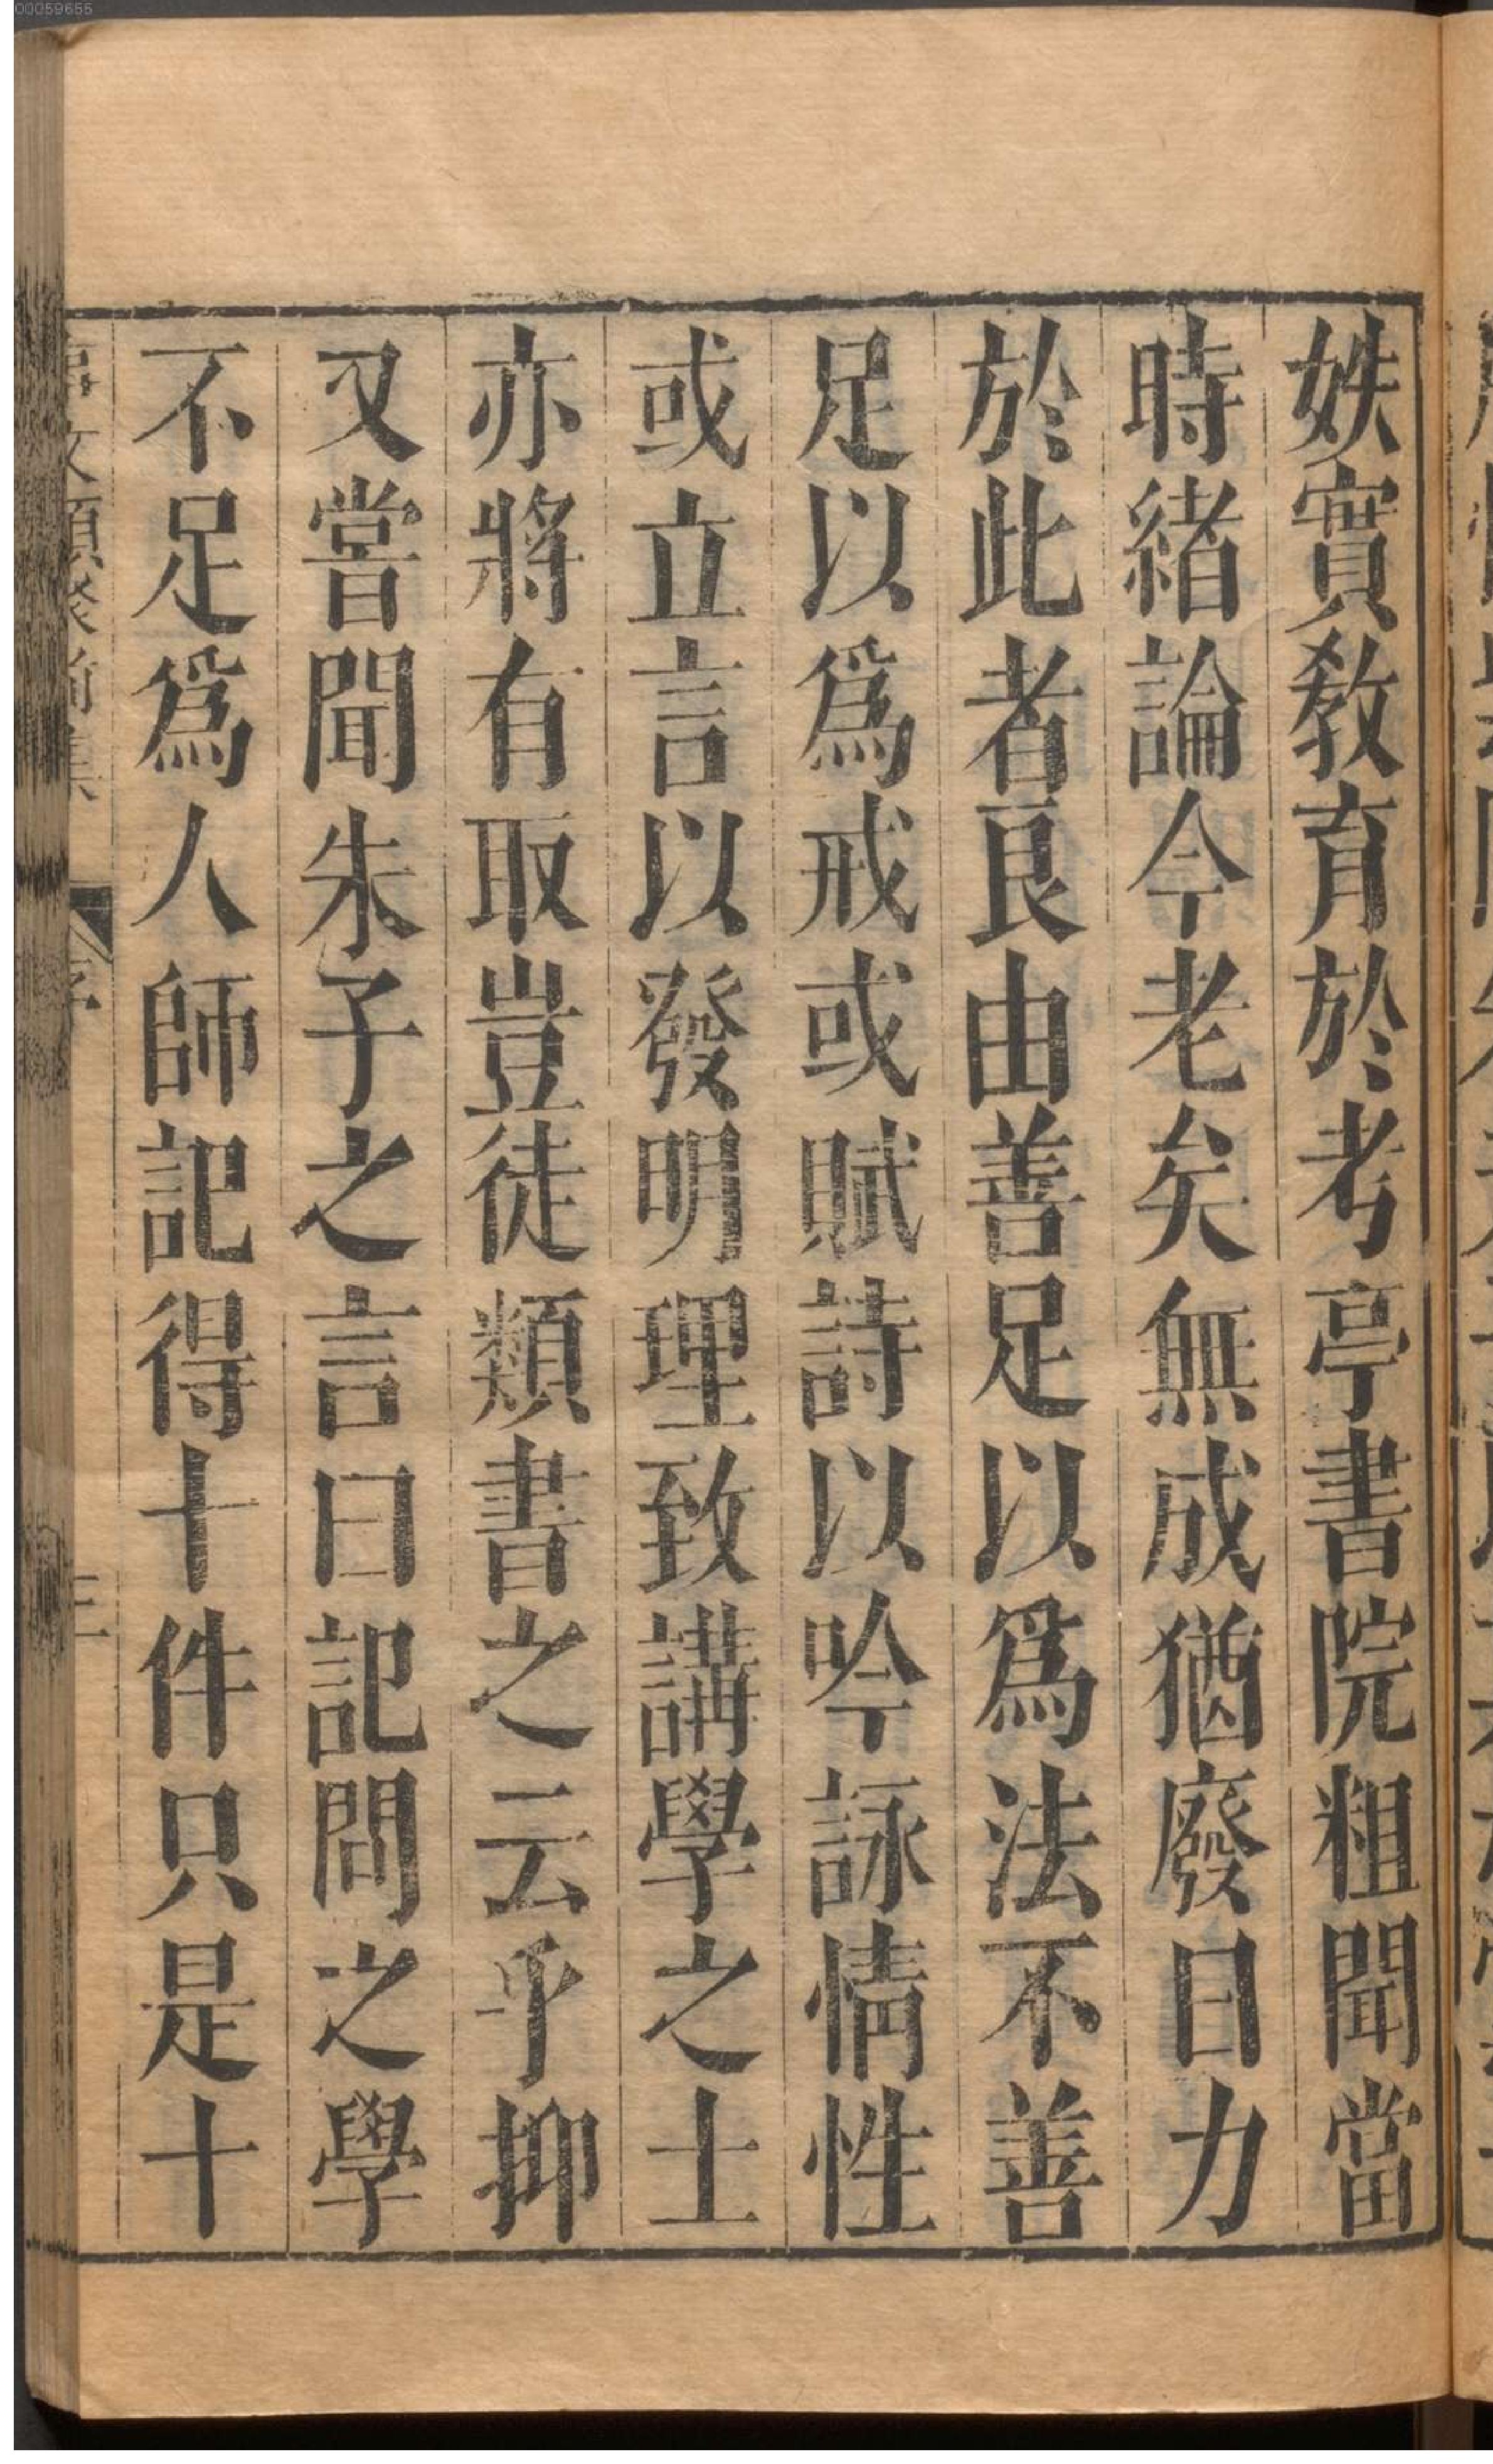 妷實敎育於考亭書院粗聞當
時緒論今老矣無成猶廢日力
於此者良由善足以爲法不善
足以爲戒或賦詩以吟詠情性
或立言以發明理致講學之士
亦將有取豈徒類書之云乎抑
又嘗聞朱子之言曰記問之學
不足爲人師記得十件只是十
序
三
00059655